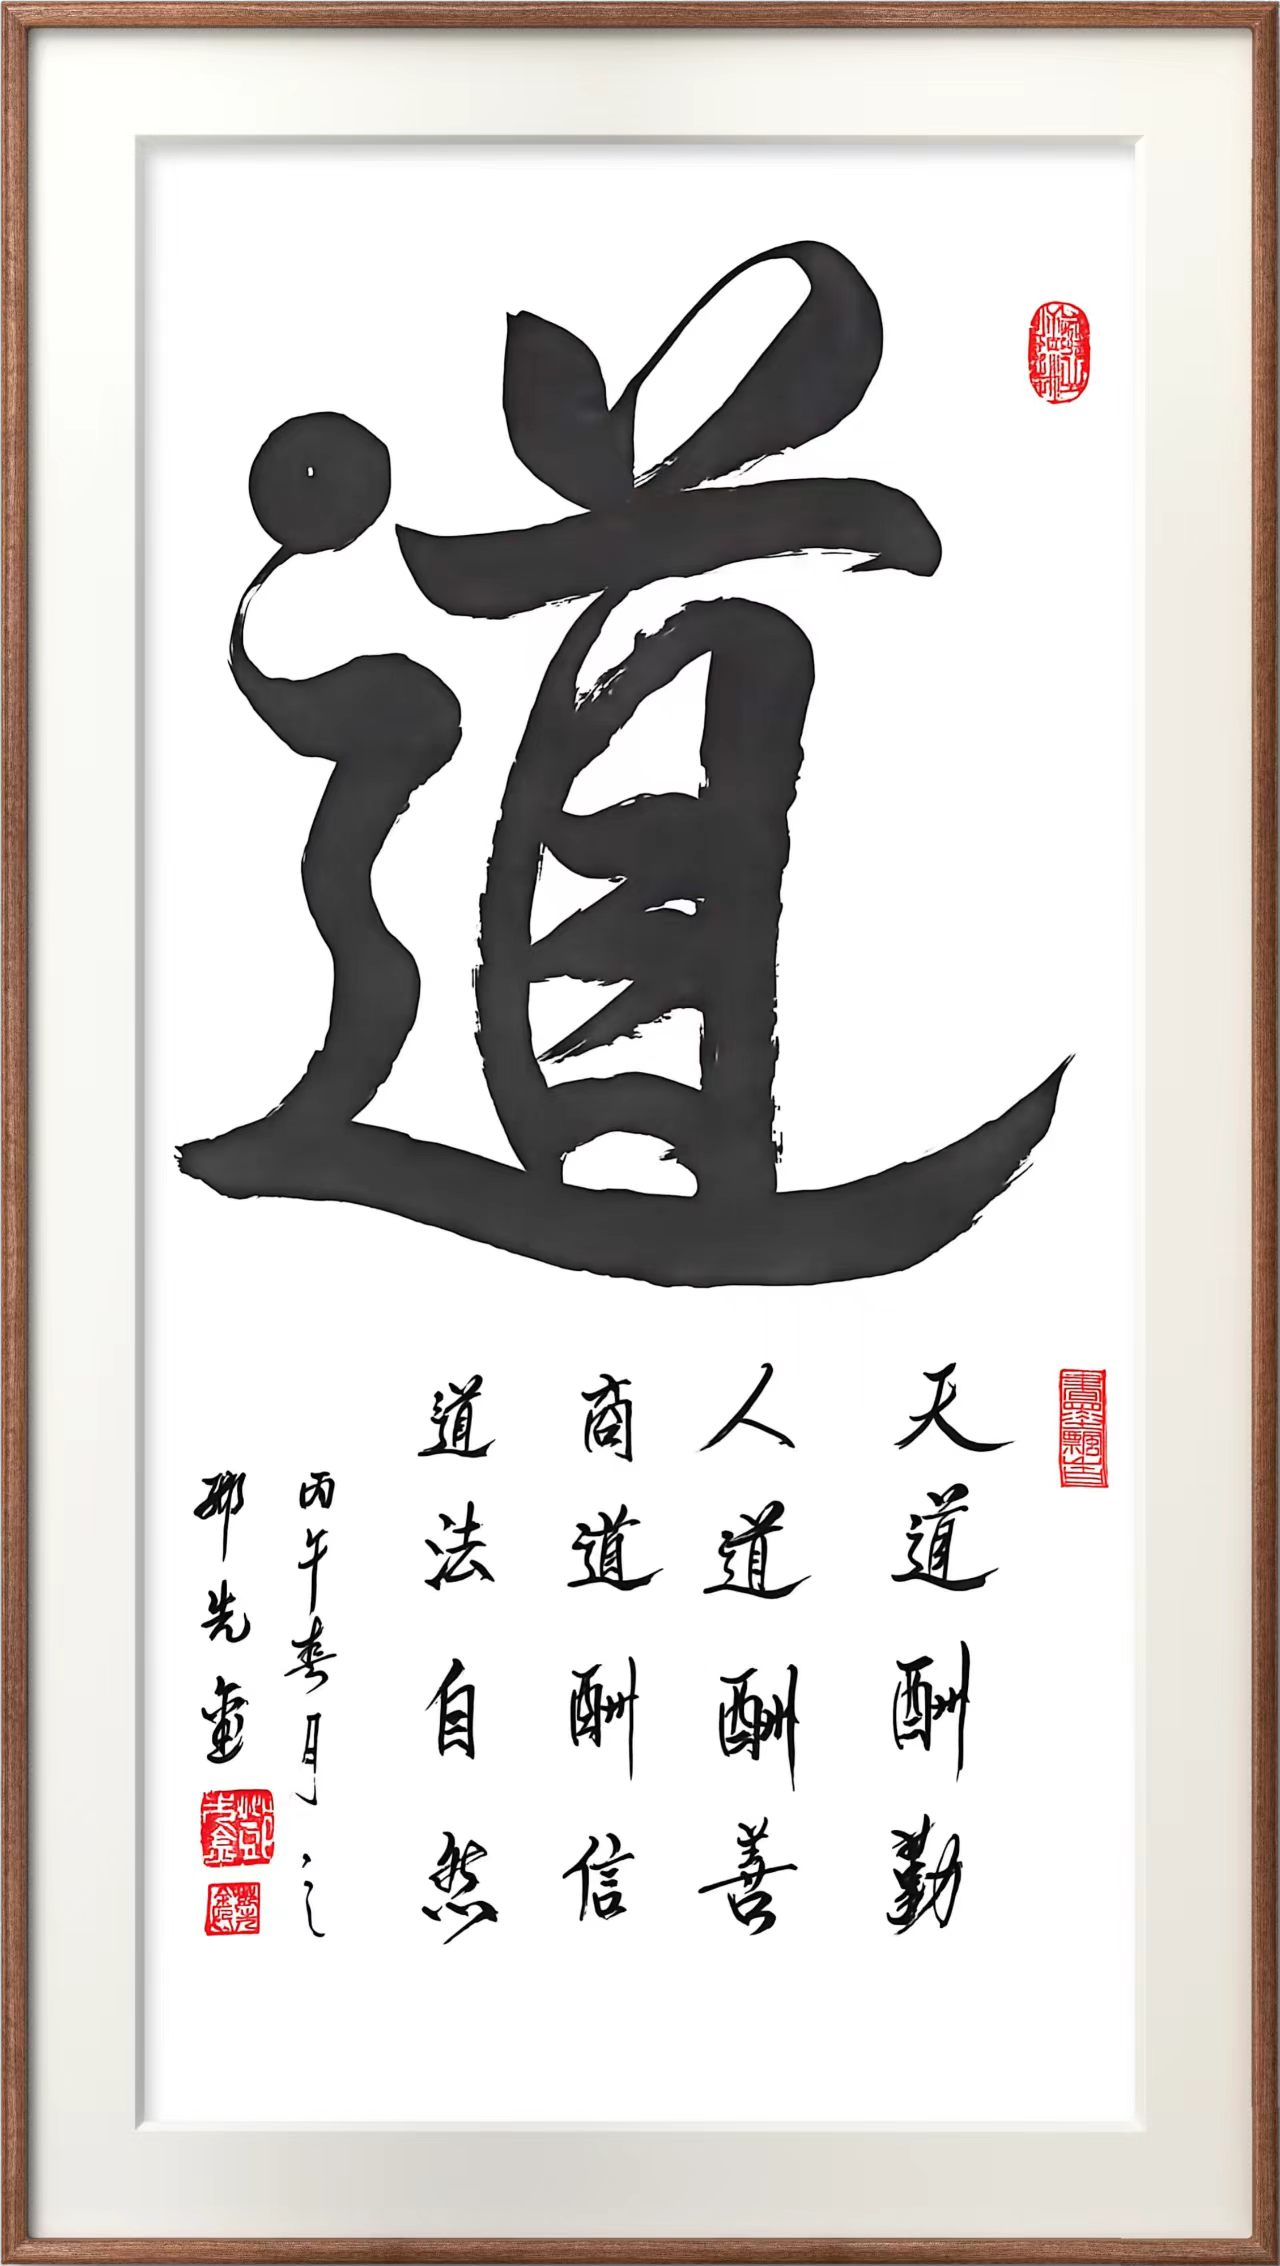 道
天道酬勤
人道酬善
商道酬信
道法自然
丙午春月
書墨飄香